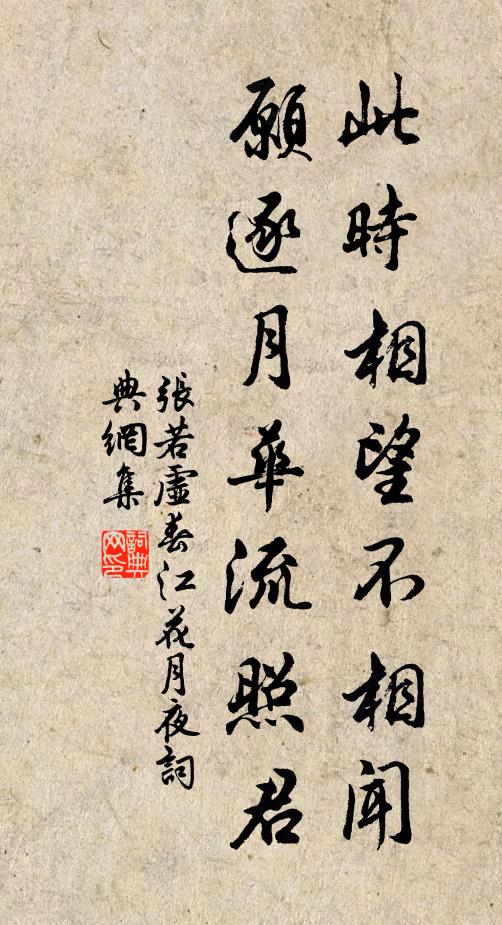 此時相望不相聞
願逐月華流照君
張若虛春江花月夜詞
典網集
詞典網印